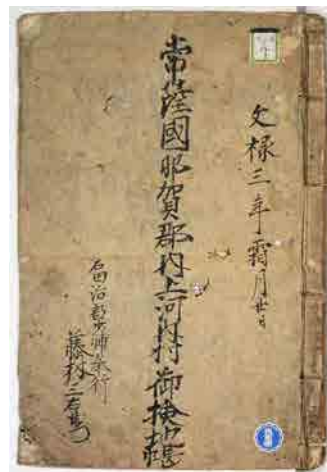 文禄三年霜月廿日
常陸國那賀郡内上河内村御検地帳
石田治部少輔奉行
藤林三右衛門